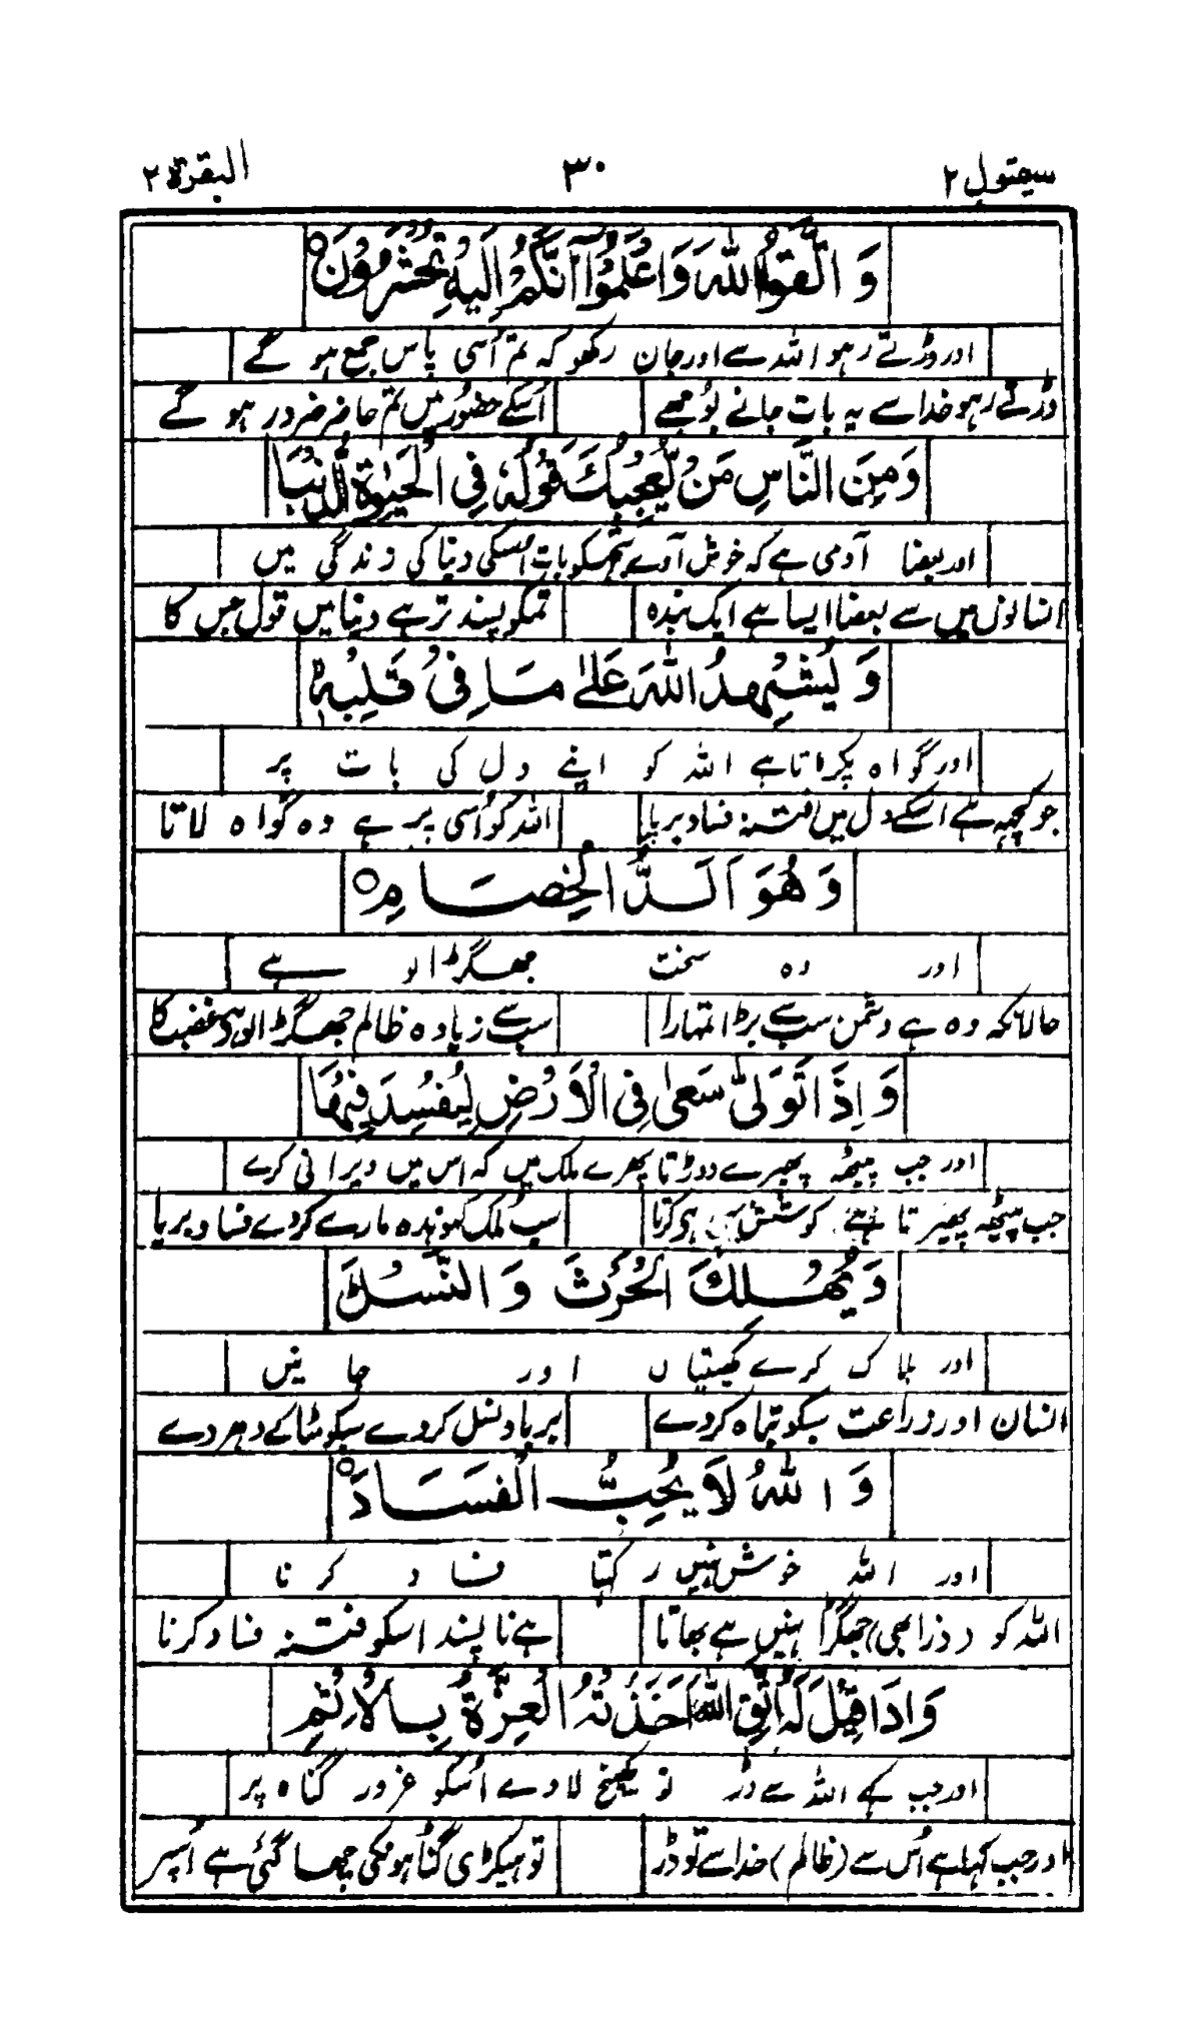 سیقول ۲ ۳۰ البقرة ۲
وَاتَّقُوا اللّٰهَ وَاعْلَمُوْٓا اَنَّكُمْ اِلَيْهِ تُحْشَرُوْنَ○
اور ڈرتے رہو اللہ سے اور جان رکھو کہ تم اُسی پاس جمع ہو گے
ڈرتے رہو خدا سے یہ بات جانے بُوجھے اُسکے حضور میں تم حاضر ضرور ہو گے
وَمِنَ النَّاسِ مَنْ يُّعْجِبُكَ قَوْلُهٗ فِي الْحَيٰوةِ الدُّنْيَا
اور بعضا آدمی ہے کہ خوش آوے تجھکو بات اسکی دنیا کی زندگی میں
انسانوں میں سے بعضا ایسا ہے ایک بندہ تمکو پسند تر ہے دنیا میں قول جس کا
وَيُشْهِدُ اللّٰهَ عَلٰى مَا فِيْ قَلْبِهٖ
اور گواہ پکڑاتا ہے اللہ کو اپنے دل کی بات پر
جو کچھ ہے اسکے دل میں فتنہ فساد برپا اللہ کو اُسی پر ہے وہ گواہ لاتا
وَهُوَ اَلَدُّ الْخِصَامِ○
اور وہ سخت جھگڑالو ہے
حالانکہ وہ ہے دشمن سب سے بڑا تمہارا سب سے زیادہ ظالم جھگڑالو ہے غضب کا
وَاِذَا تَوَلّٰى سَعٰى فِي الْاَرْضِ لِيُفْسِدَ فِيْهَا
اور جب پیٹھ پھیرے دوڑتا پھرے ملک میں کہ اس میں ویرانی کرے
جب پیٹھ پھیرتا ہے کوشش ہی کرتا سب ملک کھوندہ مارے کردے فساد برپا
وَيُهْلِكَ الْحَرْثَ وَالنَّسْلَ
اور ہلاک کرے کھیتیاں اور جانیں
انسان اور زراعت سبکو تباہ کردے برباد نسل کردے سبکو مٹا کے دھر دے
وَاللّٰهُ لَا يُحِبُّ الْفَسَادَ○
اور اللہ خوش نہیں رکھتا فساد کرنا
اللہ کو (ذرا بھی) جھگڑا نہیں ہے بھاتا ہے ناپسند اسکو فتنہ فساد کرنا
وَاِذَا قِيْلَ لَهُ اتَّقِ اللّٰهَ اَخَذَتْهُ الْعِزَّةُ بِالْاِثْمِ
اور جب کہے اللہ سے ڈر تو کھینچ لاوے اُسکو غرور گناہ پر
اور جب کہا ہے اُس سے (ظالم) خدا سے تو ڈر تو ہیکڑی گناہونکی چھا گئی ہے اُسپر